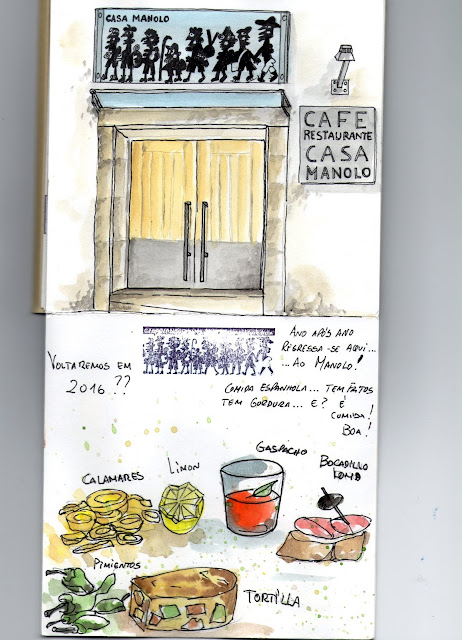 CASA MANOLO
CAFE
RESTAURANTE
CASA
MANOLO
VOLTAREMOS EM
2016??
ANO APÓS ANO
REGRESSA-SE AQUI...
...AO MANOLO!
COMIDA ESPANHOLA... TEM FRITOS
TEM GORDURA... E? É
COMIDA!
BOA!
CALAMARES
LIMON
GASPACHO
BOCADILLO
LOMO
PIMIENTOS
TORTILLA